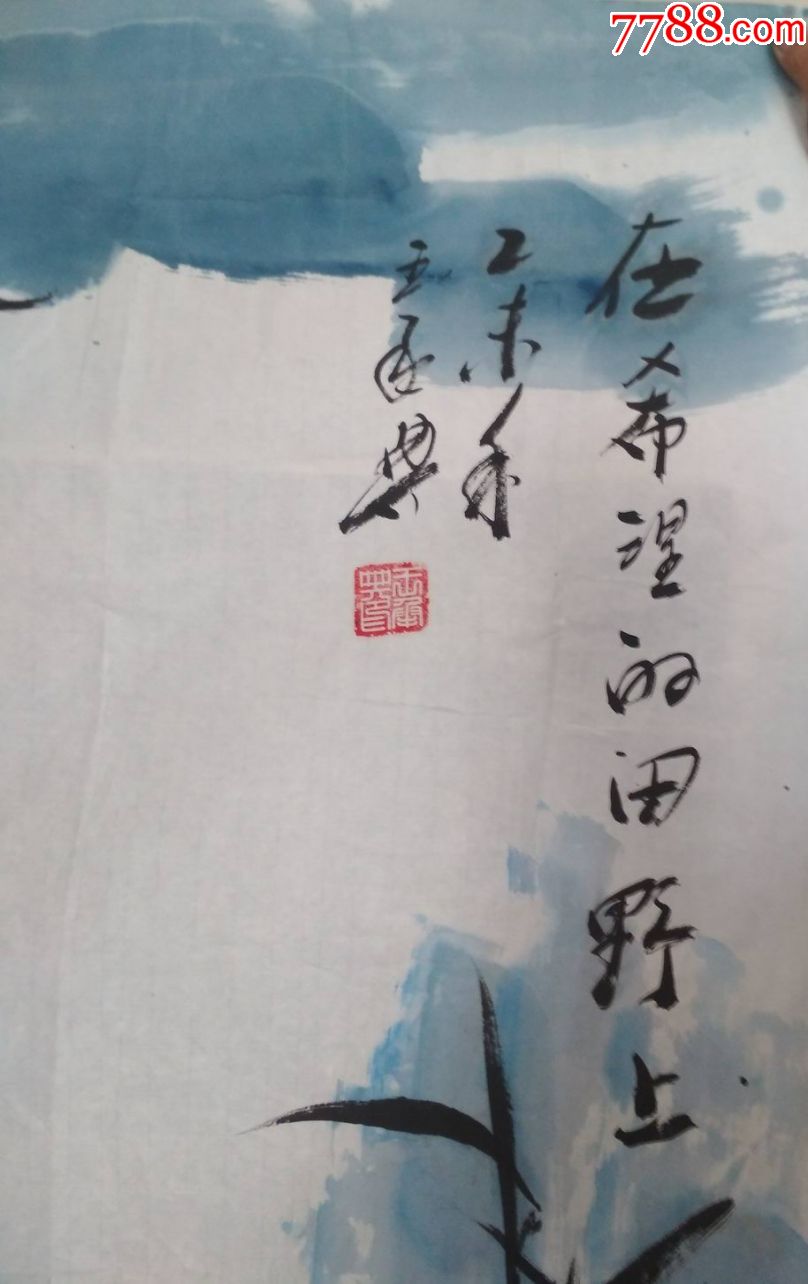 7788.com
在希望的田野上
乙未年
王
典